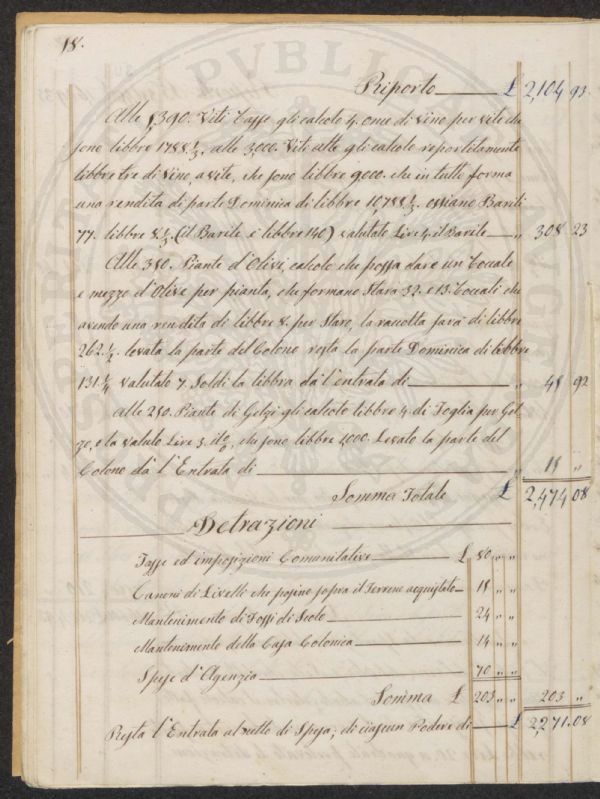 18.
Riporto £ 2,104 93.
Alle 5,390. Viti basse gli calcolo 4. once di vino per vite che
sono libbre 1788 1/2. alle 3,000. Viti alte gli calcolo repartitamente
libbre tre di vino, a vite, che sono libbre 9000. che in tutto forma
una rendita di parte Dominica di libbre 10,788 1/2. ossiano Barili
77. libbre 8 1/2. (il Barile è libbre 140) valutate Lire 4. il Barile „ 308 23
Alle 350. Piante d'Olivi, calcolo che possa dare un Boccale
e mezzo d'Olive per pianta, che formano Stara 32. e 13. Boccali che
avendo una rendita di libbre 8. per Staro, la raccolta sarà di libbre
262 1/2. levata la parte del Colono resta la parte Dominica di libbre
131 1/4 valutato 7. Soldi la libbra dà l'entrata di „ 45 92
Alle 250. Piante di Gelsi gli calcolo libbre 4. di Foglia per Gel-
zo, e la valuto Lire 3. il %, che sono libbre 1000. Levato la parte del
Colono dà l'Entrata di „ 15 „
Somma Totale £ 2,474,08
Detrazioni
Tasse ed imposizioni Comunitative £ 80 „ „
Canoni di Livelli che posino sopra il Terreno acquistato 15 „ „
Mantenimento di Fossi di Scolo 24 „ „
Mantenimento della Casa Colonica 14 „ „
Spese d'Agenzia 70 „ „
Somma £ 203 „ „ 203 „
Resta l'Entrata al netto di Spese, di ciascun Podere di £ 2,271.08